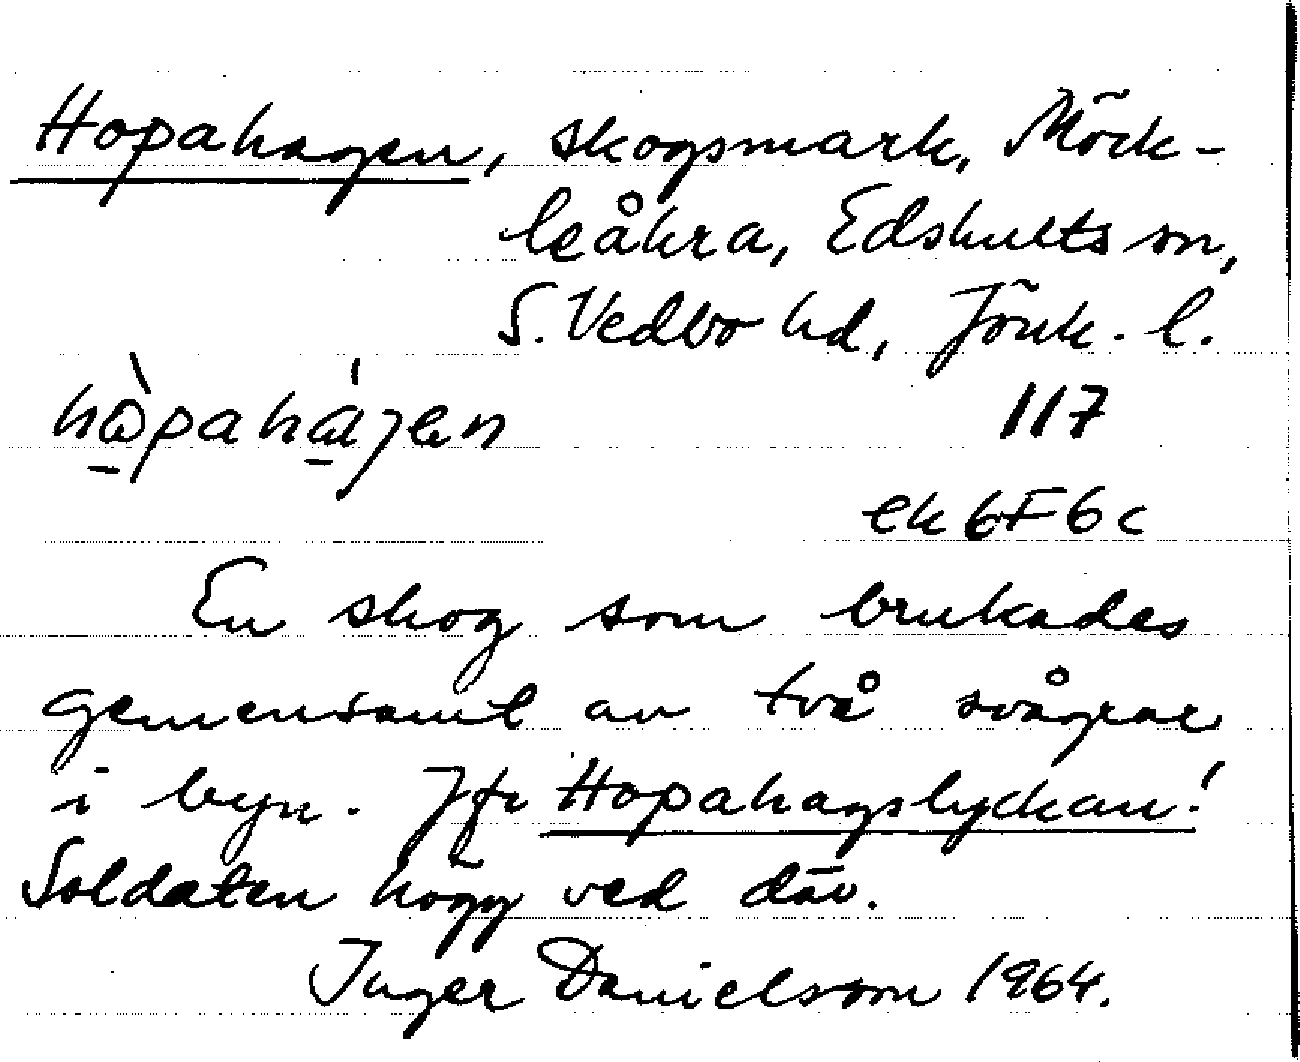 Hopahagen, skogsmark, Möck-
leåkra, Edshults sn,
S. Vedbo hd, Jönk. l.
hò̱pahá̱jen 117
ek 6F6c
En skog som brukades
gemensamt av två svågrar
i byn. Jfr Hopahagslyckan!
Soldaten högg ved där.
Inger Danielsson 1964.